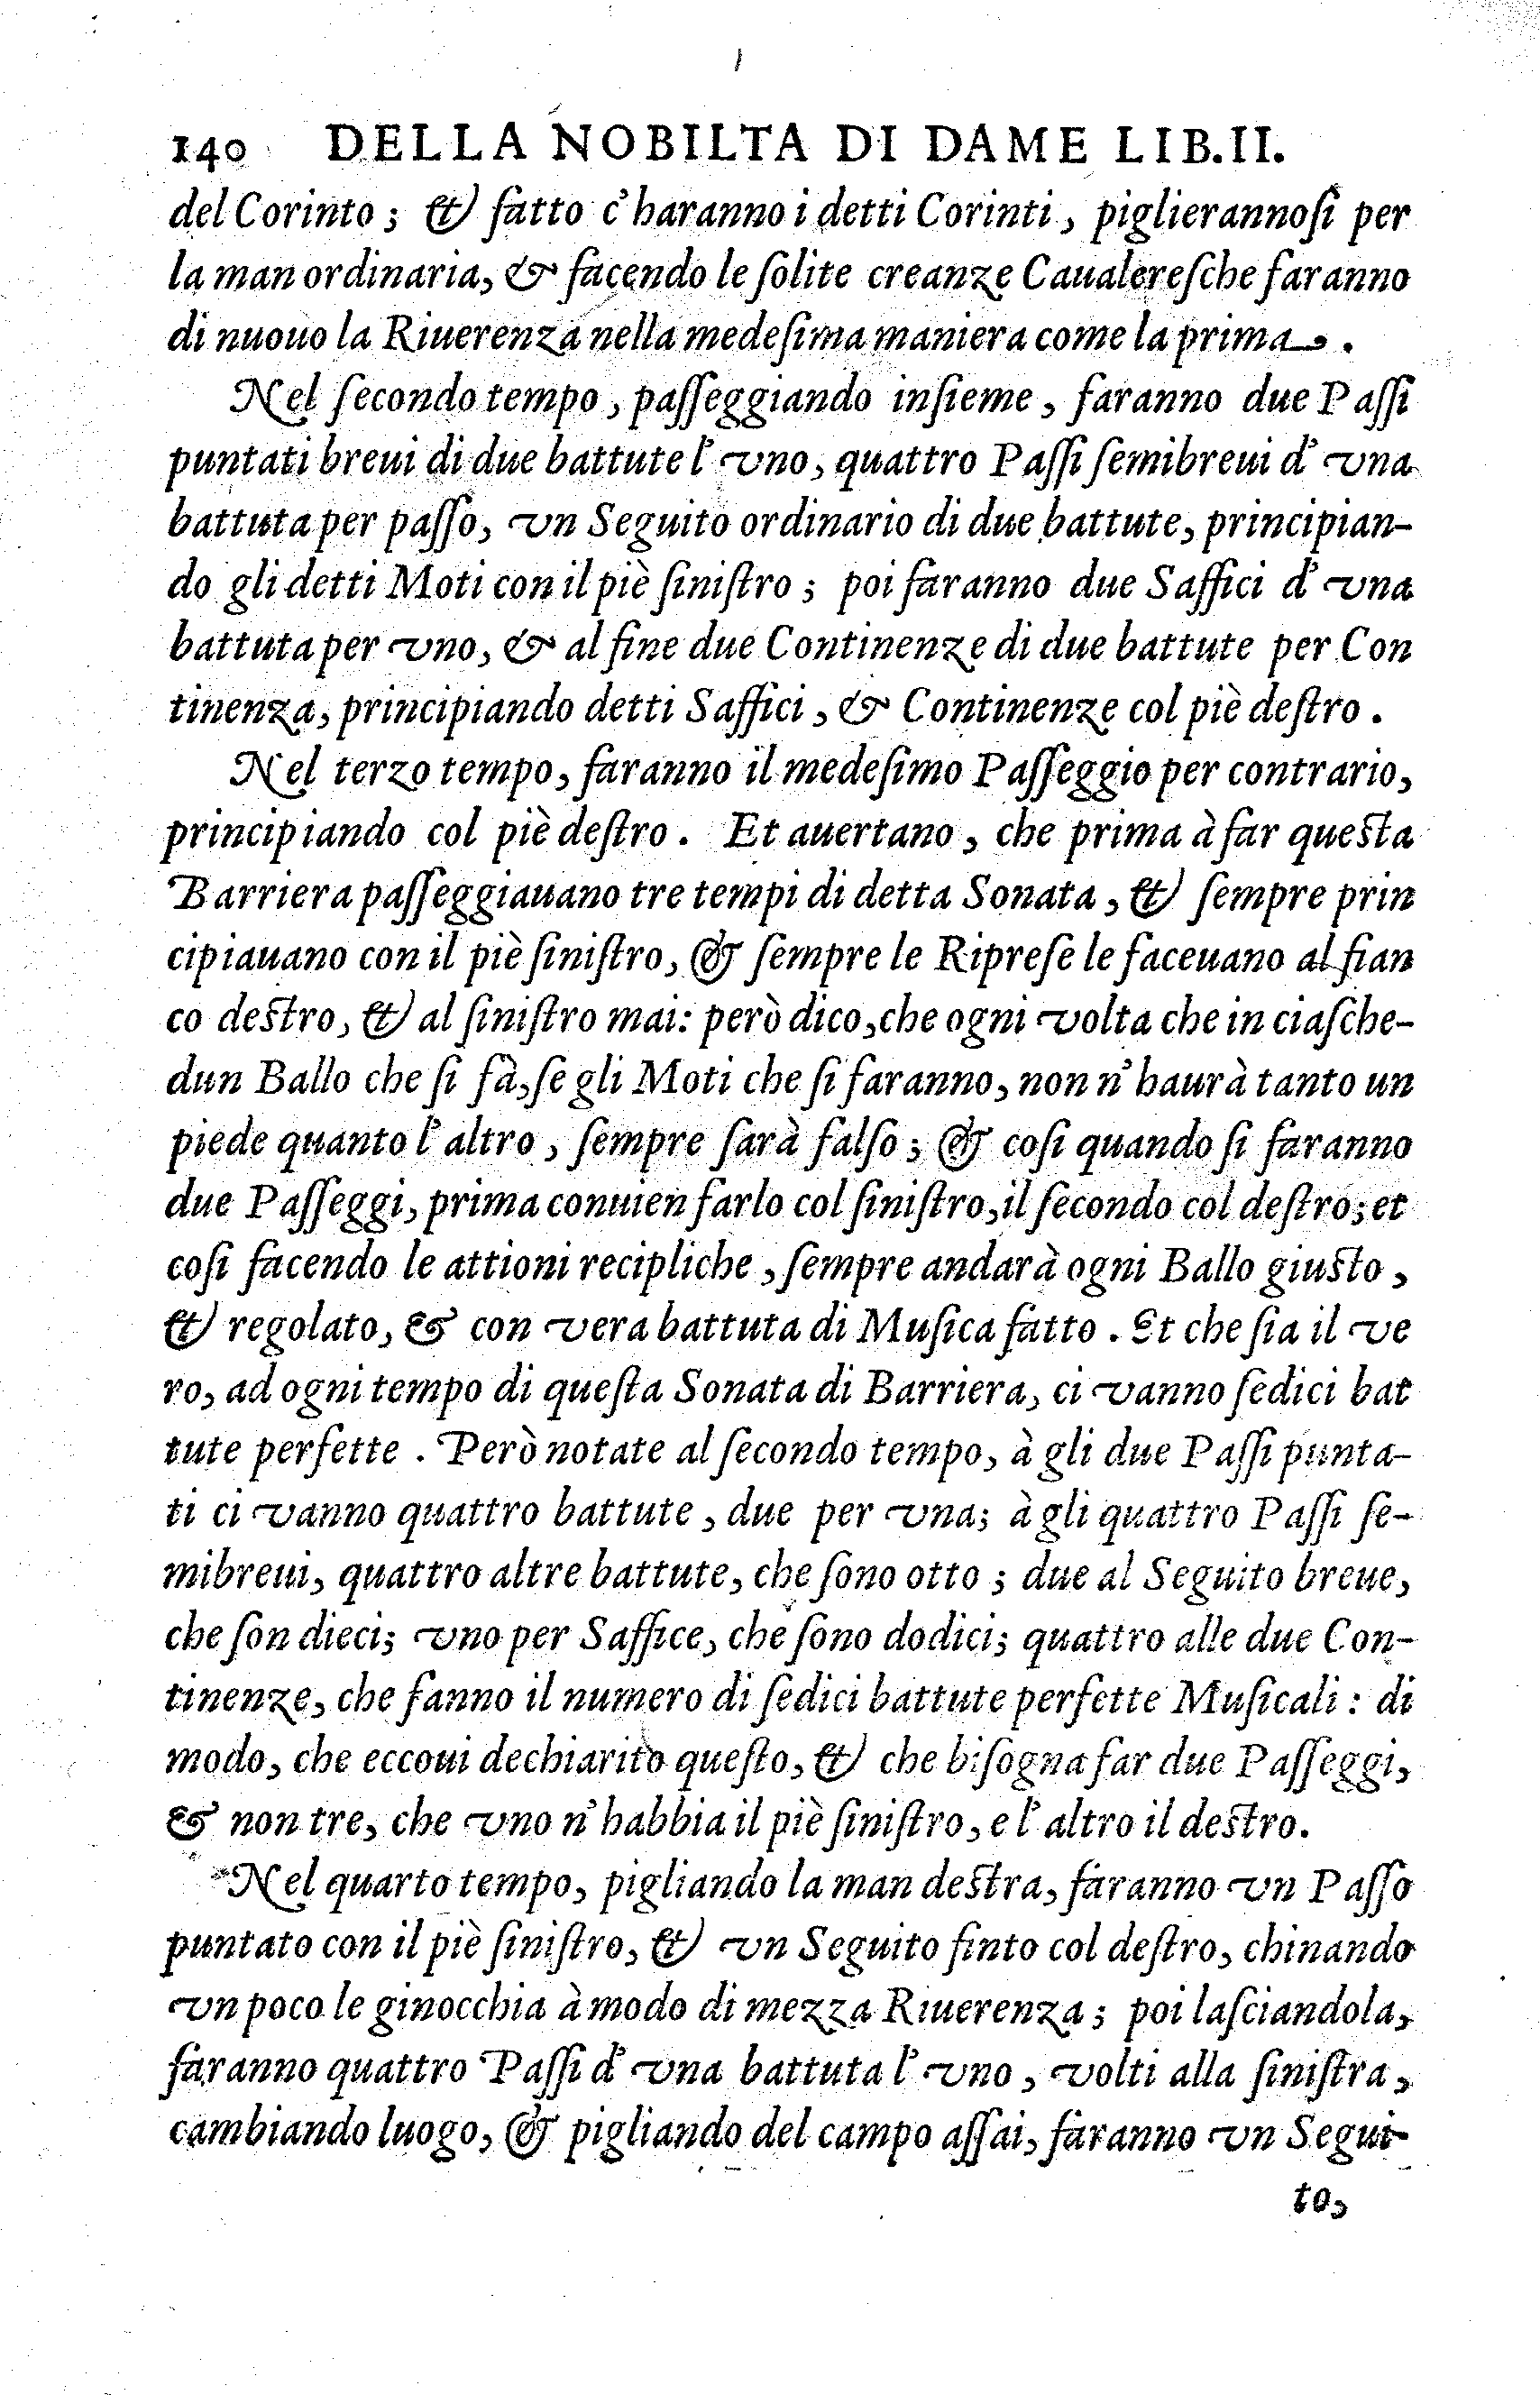 140 DELLA NOBILTA DI DAME LIB.II.
del Corinto ; & fatto c'haranno i detti Corinti , piglierannoſi per
la man ordinaria, & facendo le ſolite creanze Caualereſche faranno
di nuouo la Riuerenza nella medeſima maniera come la prima .
Nel ſecondo tempo , paſſeggiando inſieme , faranno due Paſſi
puntati breui di due battute l'vno, quattro Paſſi ſemibreui d'vna
battuta per paſſo, vn Seguito ordinario di due battute, principian-
do gli detti Moti con il piè ſiniſtro ; poi faranno due Saffici d'vna
battuta per vno, & al fine due Continenze di due battute per Con
tinenza, principiando detti Saffici , & Continenze col piè deſtro .
Nel terzo tempo, faranno il medeſimo Paſſeggio per contrario,
principiando col piè deſtro . Et auertano , che prima à far queſta
Barriera paſſeggiauano tre tempi di detta Sonata , & ſempre prin
cipiauano con il piè ſiniſtro, & ſempre le Ripreſe le faceuano al fian
co deſtro, & al ſiniſtro mai: però dico,che ogni volta che in ciaſche-
dun Ballo che ſi fà,ſe gli Moti che ſi faranno, non n'haurà tanto un
piede quanto l'altro , ſempre ſarà falſo ; & coſi quando ſi faranno
due Paſſeggi, prima conuien farlo col ſiniſtro,il ſecondo col deſtro;et
coſi facendo le attioni recipliche , ſempre andarà ogni Ballo giuſto ,
& regolato, & con vera battuta di Muſica fatto . Et che ſia il ve
ro, ad ogni tempo di queſta Sonata di Barriera, ci vanno ſedici bat
tute perfette . Però notate al ſecondo tempo, à gli due Paſſi punta-
ti ci vanno quattro battute , due per vna; à gli quattro Paſſi ſe-
mibreui, quattro altre battute, che ſono otto ; due al Seguito breue,
che ſon dieci; vno per Saffice, che ſono dodici; quattro alle due Con-
tinenze, che fanno il numero di ſedici battute perfette Muſicali : di
modo, che eccoui dechiarito queſto, & che biſogna far due Paſſeggi,
& non tre, che vno n'habbia il piè ſiniſtro, e l'altro il deſtro.
Nel quarto tempo, pigliando la man deſtra, faranno vn Paſſo
puntato con il piè ſiniſtro, & vn Seguito finto col deſtro, chinando
vn poco le ginocchia à modo di mezza Riuerenza ; poi laſciandola,
faranno quattro Paſſi d'vna battuta l'vno , volti alla ſiniſtra ,
cambiando luogo, & pigliando del campo aſſai, faranno vn Segui-
to,